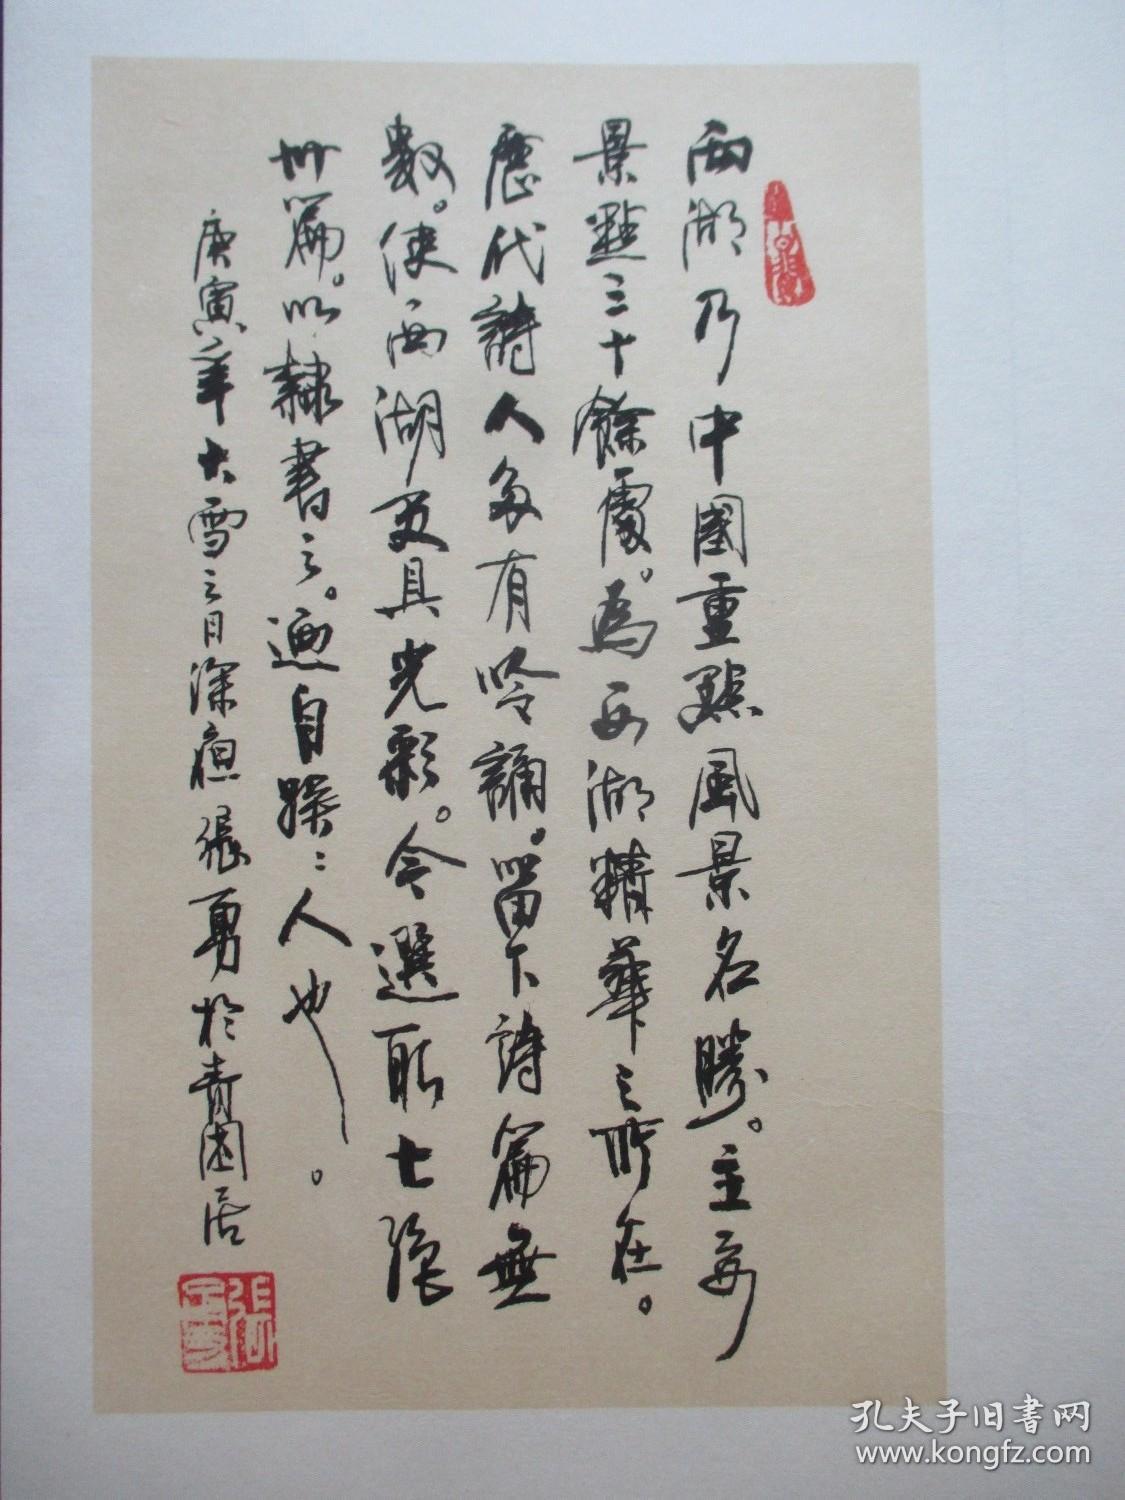 西湖乃中國重點風景名勝。主要
景點三十餘處。為西湖精華之所在。
歷代詩人多有吟誦。留下詩篇無
數。使西湖更具光彩。今選取七絕
卅篇。以隸書之。適自娛娛人也。
庚寅年大雪之日深夜張勇於青園居
孔夫子旧书网
www.kongfz.com